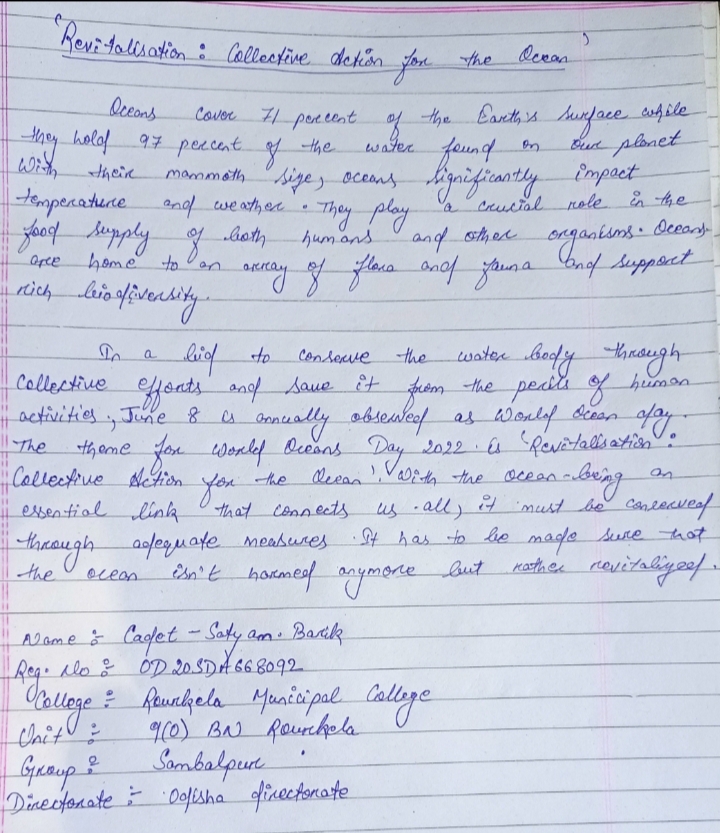 'Revitalisation : Collective Action for the Ocean'
Oceans cover 71 percent of the Earth's surface while
they hold 97 percent of the water found on our planet
With their mammoth size, oceans significantly impact
temperature and weather. They play a crucial role in the
food supply of both humans and other organisms. Oceans
are home to an array of flora and fauna and support
rich biodiversity.
In a bid to conserve the water body through
collective efforts and save it from the perils of human
activities, June 8 is annually observed as World Ocean day.
The theme for World Oceans Day 2022 is 'Revitalisation :
Collective Action for the Ocean'. With the ocean-being an
essential link that connects us all, it must be conserved
through adequate measures. It has to be made sure that
the ocean isn't harmed anymore but rather revitalized.
Name :- Cadet - Satyam. Barik
Reg. No :- OD20SDA668092
College :- Rourkela Municipal College
Unit :- 9(O) BN Rourkela
Group :- Sambalpur
Directorate :- Odisha directorate